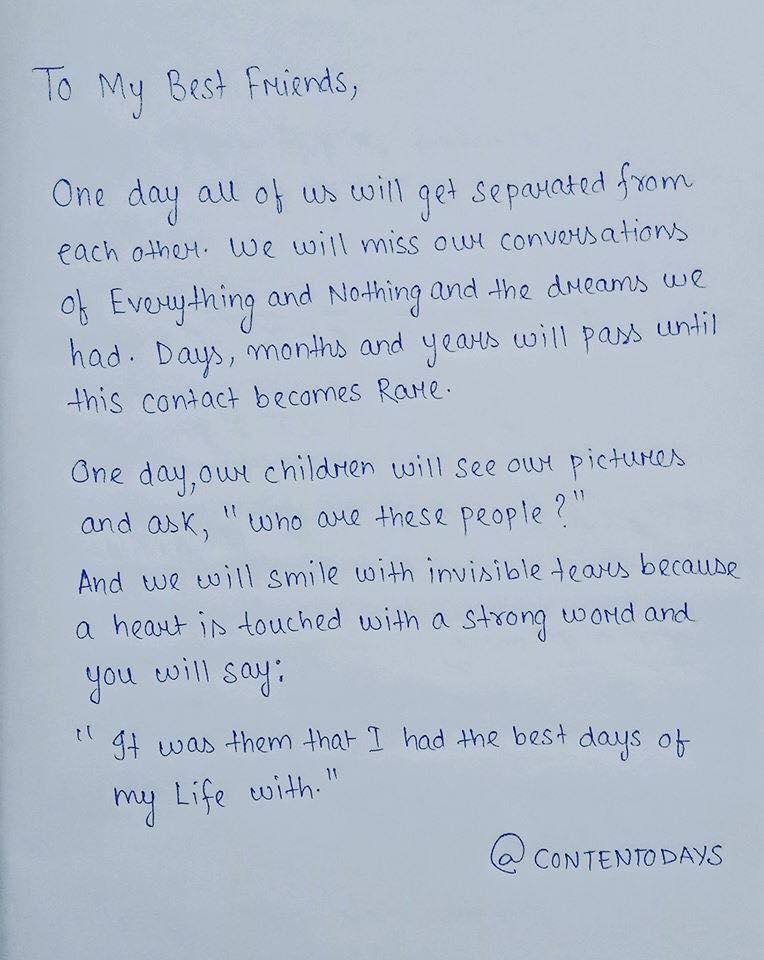 To My Best Friends,
One day all of us will get separated from
each other. We will miss our conversations
of Everything and Nothing and the dreams we
had. Days, months and years will pass until
this contact becomes Rare.
One day, our children will see our pictures
and ask, "who are these people?"
And we will smile with invisible tears because
a heart is touched with a strong word and
you will say:
"It was them that I had the best days of
my Life with."
@CONTENTODAYS